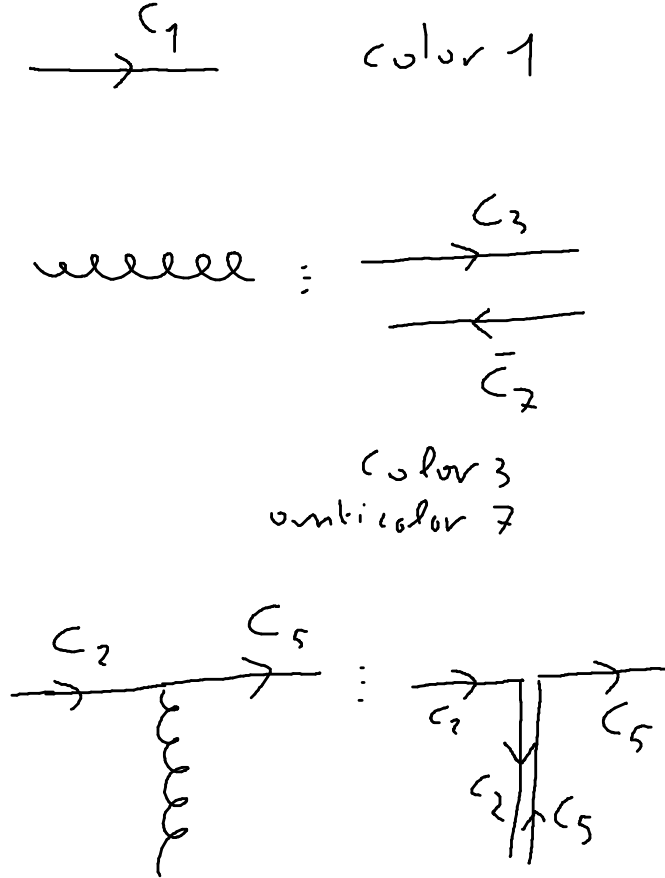 C₁
color 1
C₃
C̄₇
color 3
anticolor 7
C₂ C₅
C₂ C₅
C₂ C₅